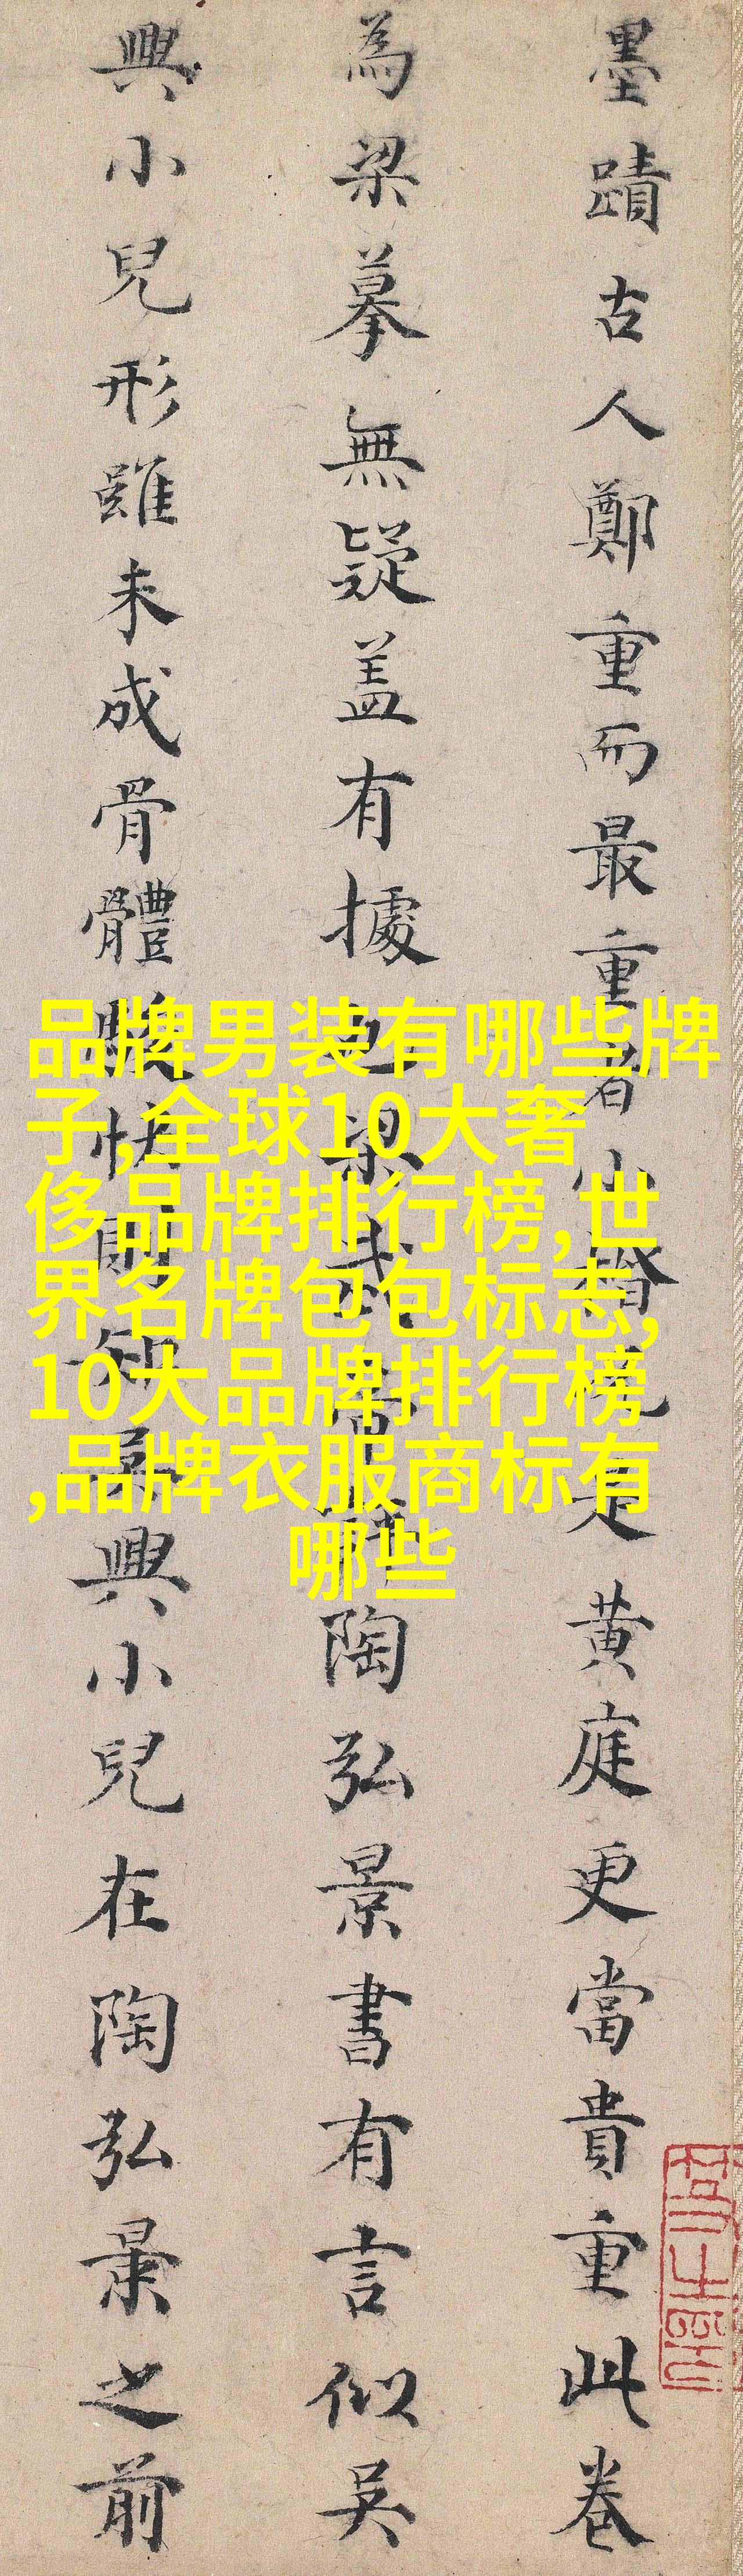 墨蹟古人鄭重而最重者小楷況是黄庭更當貴重此卷
為梁摹無疑蓋有據也梁武帝評陶弘景書有言似吴
興小兒形雖未成骨體駿快則知吴興小兒在陶弘景之前
品牌男装有哪些牌
子,全球10大奢
侈品牌排行榜,世
界名牌包包标志,
10大品牌排行榜
,品牌衣服商标有
哪些